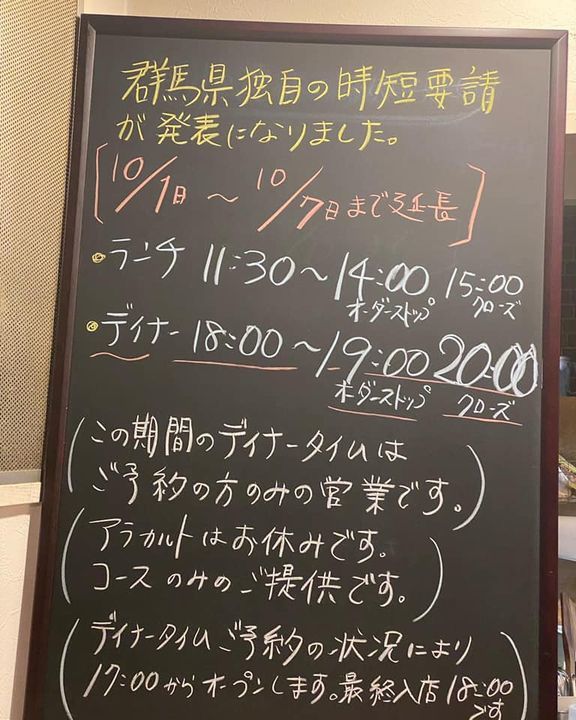 群馬県独自の時短要請
が発表になりました。
[10/1日～10/7日まで延長]
ランチ 11:30～14:00 15:00
オーダーストップ クローズ
ディナー 18:00～19:00 20:00
オーダーストップ クローズ
(この期間のディナータイムは
ご予約の方のみの営業です。)
(アラカルトはお休みです。
コースのみのご提供です。)
(ディナータイムご予約の状況により
17:00からオープンします。最終入店18:00
です)